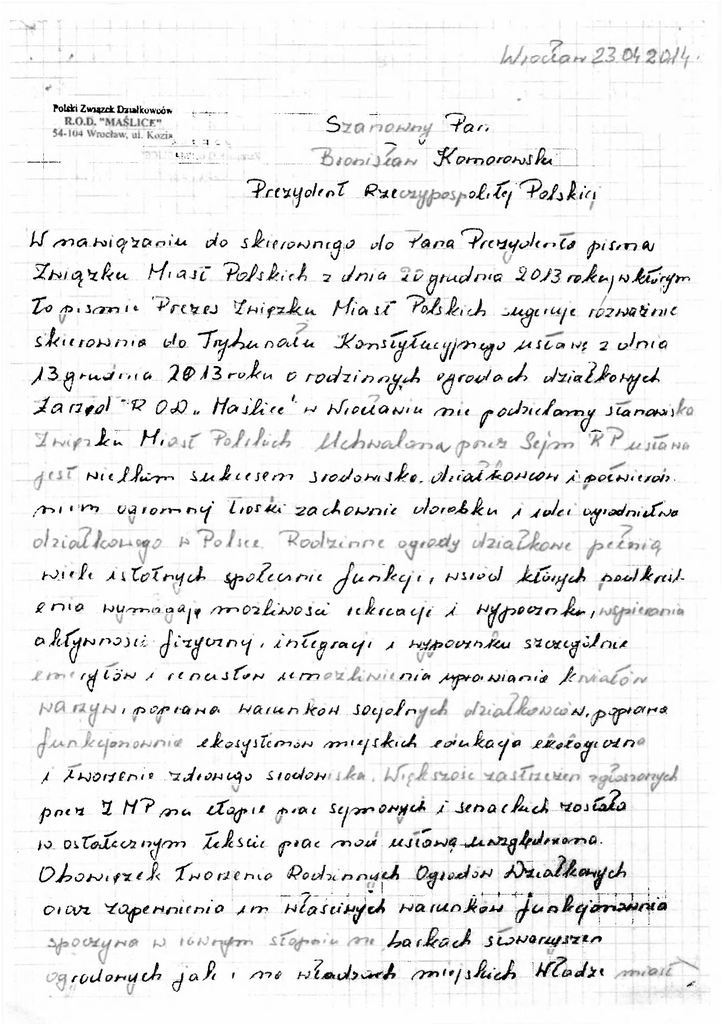 Wrocław 23.04.2014.
Polski Związek Działkowców
R.O.D. "MAŚLICE"
54-104 Wrocław, ul. Kozia
Szanowny Pan
Bronisław Komorowski
Prezydent Rzeczypospolitej Polskiej
W nawiązaniu do skierownego do Pana Prezydenta pisma
Związku Miast Polskich z dnia 20 grudnia 2013 roku, w którym
to piśmie Prezes Związku Miast Polskich sugeruje rozważnie
skierownia do Trybunału Konstytucyjnego ustawę z dnia
13 grudnia 2013 roku o rodzinnych ogrodach działkowych
Zarząd "R OD „Maślice" w Wrocławiu nie podzielamy stanowiska
Związku Miast Polskich Uchwalona przez Sejm RP ustawa
jest wielkim sukcesem środowiska działkowców i potwierdze
niem ogromnej troski zachownie dorobku i roli ogrodnictwa
działkowego w Polsce. Rodzinne ogrody działkowe pełnią
wiele istotnych społecznie funkcji, wśród których podkreśl-
enia wymagają możliwości rekreacji i wypoczynku, wspierania
aktywności fizycznej, integracji i wypoczynku szczególnie
emerytów i rencistów umożliwienia uprawiania kwiatów
warzyw, poprawa warunków socjolnych działkowców, poprawa
funkcjonownia ekosystemów miejskich edukacja ekologiczna
i tworzenie zdrowego środowiska. Większość zastrzeżeń zgłoszonych
przez ZMP na etapie prac sejmowych i senackich została
w ostatecznym tekście prac nad ustawą uwzględniona.
Obowiązek Tworzenia Rodzinnych Ogrodów Działkowych
oraz zapewnienia im właściwych warunków funkcjonownia
spoczywa w równym stopniu na barkach stowarzyszeń
ogrodowych jak i na władzach miejskich Władze miast